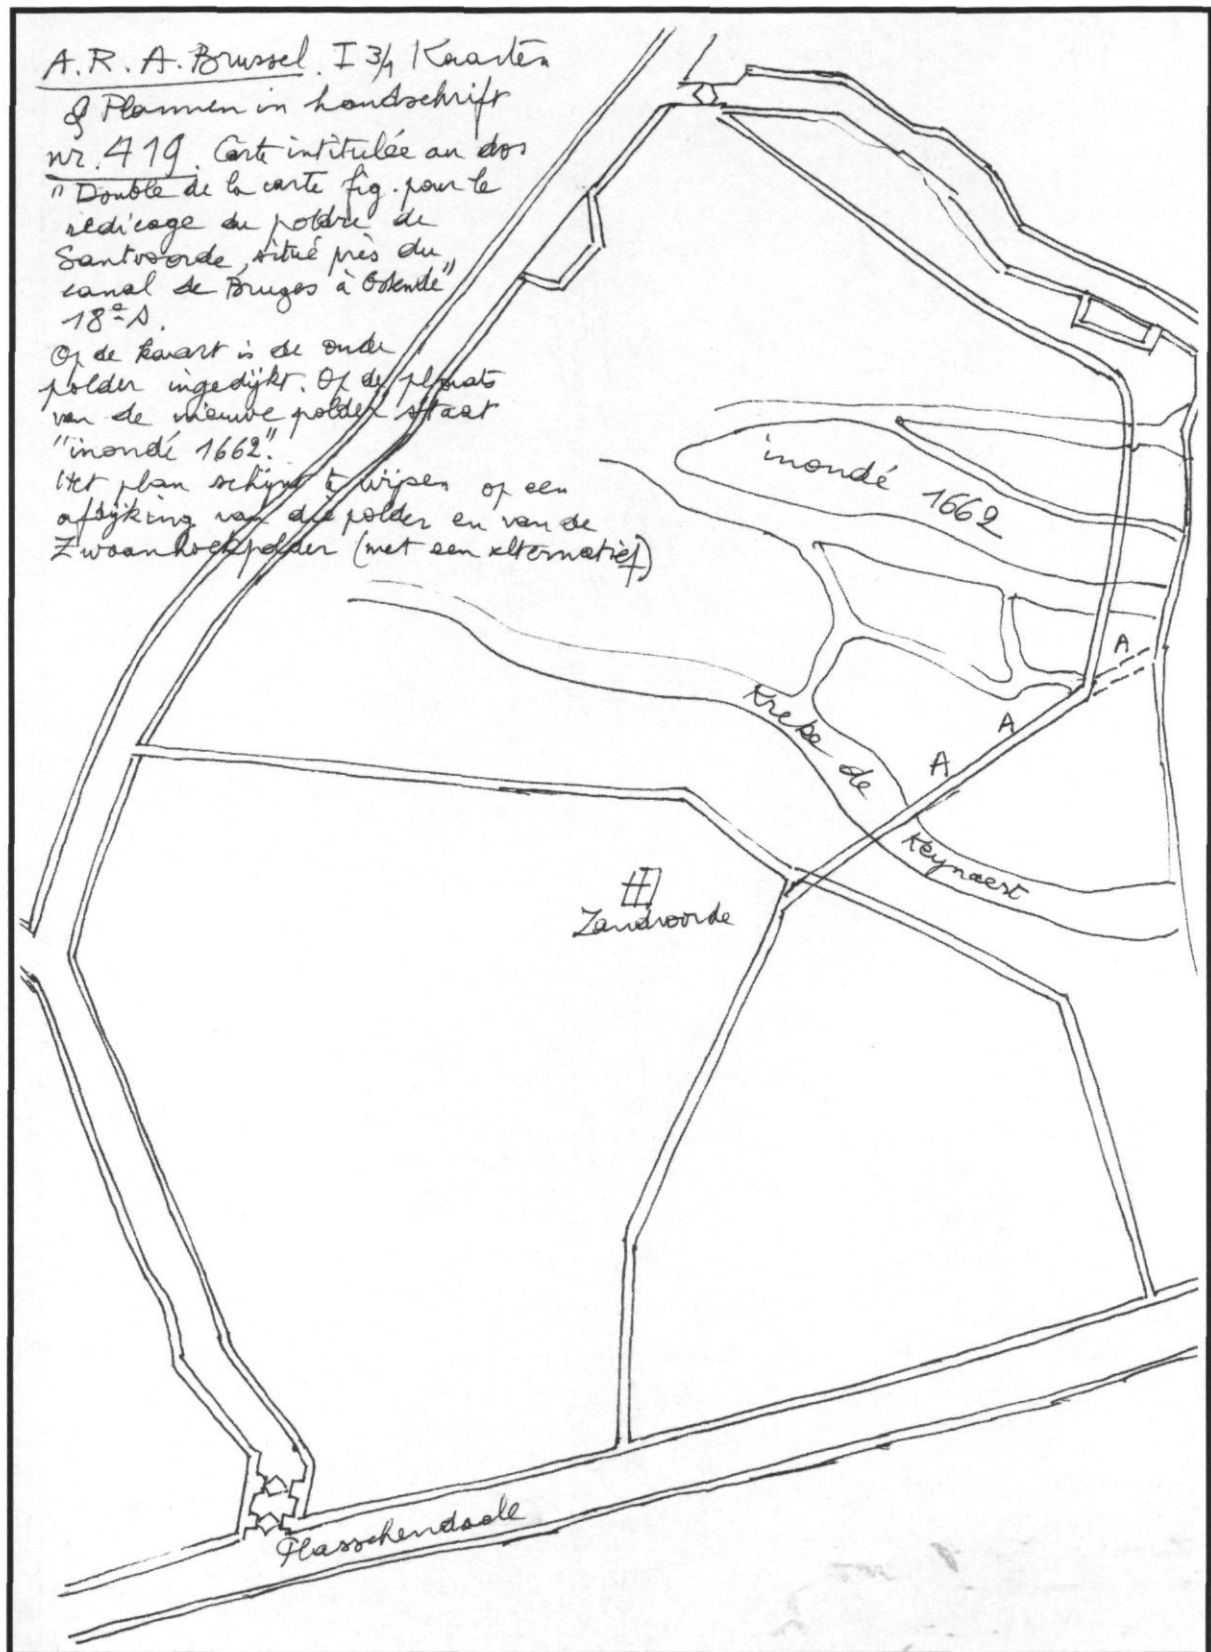 A.R.A. Brussel. I 3/4 Kaarten
& Plannen in handschrift
nr. 419. Carte intitulée au dos
"Double de la carte fig. pour le
rédicage du poldre de
Santvoorde, situé près du
canal de Bruges à Ostende"
18e S.
Op de kaart is de oude
polder ingedijkt. Op de plaats
van de nieuwe polder staat
"inondé 1662".
Het plan schijnt te wijzen op een
afdijking van die polder en van de
Zwaanhoekpolder (met een alternatief)
inondé 1662
A
A
A
Kreke de
Keynaert
Zandvoorde
Plasschendaele